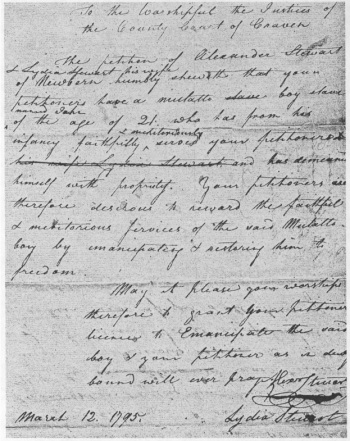 To the Worshipful the Justices of
the County Court of Craven
The petition of Alexander Stewart
& Lydia Stewart his wife
of Newbern humbly sheweth that your
petitioners have a mulatto slave boy slave
named John
of the age of 21. who has from his
& meritoriously
infancy faithfully served your petitioners
his wife Lydia Stewart and has demeaned
himself with propriety. Your petitioners are
therefore desirous to reward the faithful
& meritorious services of the said Mulatto
boy by emancipating & restoring him to
freedom.
May it please your worships
therefore to grant your petitioners
license to Emancipate the said
boy & your petitioner as in duty
bound will ever pray Alex Stewart
March 12. 1795. Lydia Stewart